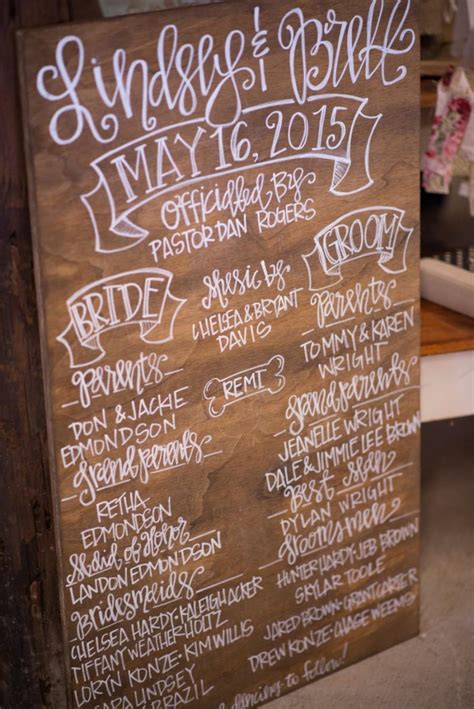 Lindsey & Brett
MAY 16, 2015
Officiated By
PASTOR DAN ROGERS
BRIDE
Parents
DON & JACKIE
EDMONDSON
Grandparents
RETHA
EDMONDSON
Maid of Honor
LANDON EDMONDSON
Bridesmaids
CHELSEA HARDY • KALEIGH ACKER
TIFFANY WEATHERHOLTZ
LORYN KONZE • KIM WILLIS
SARA LINDSEY
BRAZIL
Music by
CHELSEA & BRYANT
DAVIS
REMI
GROOM
Parents
TOMMY & KAREN
WRIGHT
Grandparents
JEANELLE WRIGHT
DALE & JIMMIE LEE BROWN
Best Man
DYLAN WRIGHT
Groomsmen
HUNTER HARDY • JEB BROWN
SKYLAR TOOLE
JARED BROWN • GRANT CARTER
DREW KONZE • CHASE WEEMS
dancing to follow!